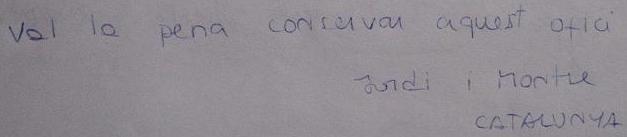 Val la pena conservar aquest ofici
Jordi i Montse
CATALUNYA